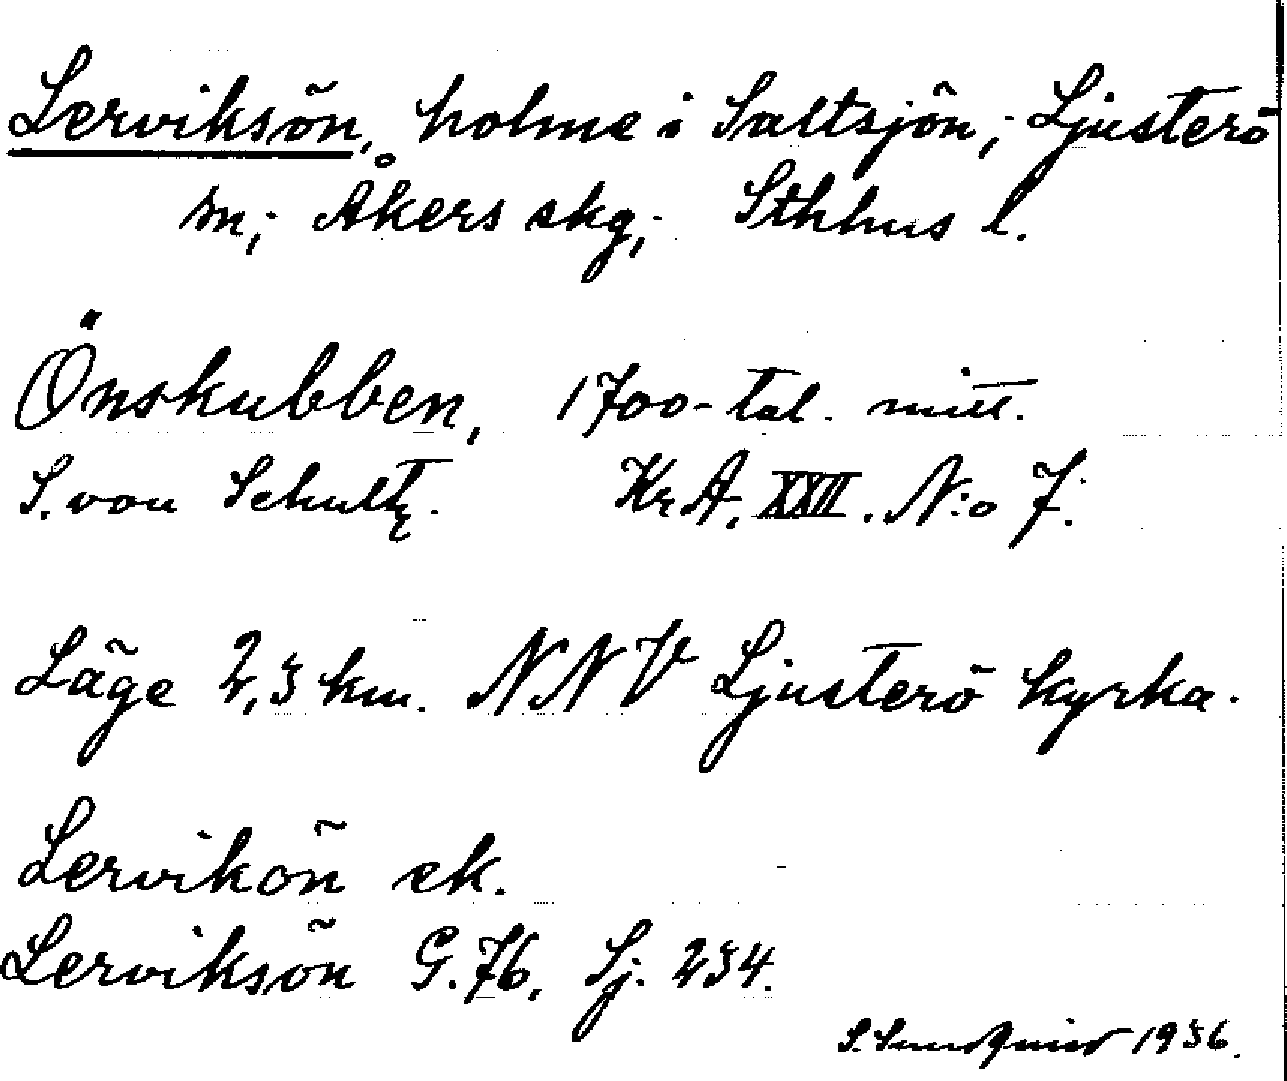 Lerviksön, holme i Saltsjön; Ljusterö
sn; Åkers skg; Sthlms l.
Önskubben, 1700-tal. mitt.
S. von Schultz. Kr A. XXII. N:o 7.
Läge 2,3 km. NNV Ljusterö kyrka.
Lervikön ek.
Lerviksön G. 76, Sj. 234.
1936.